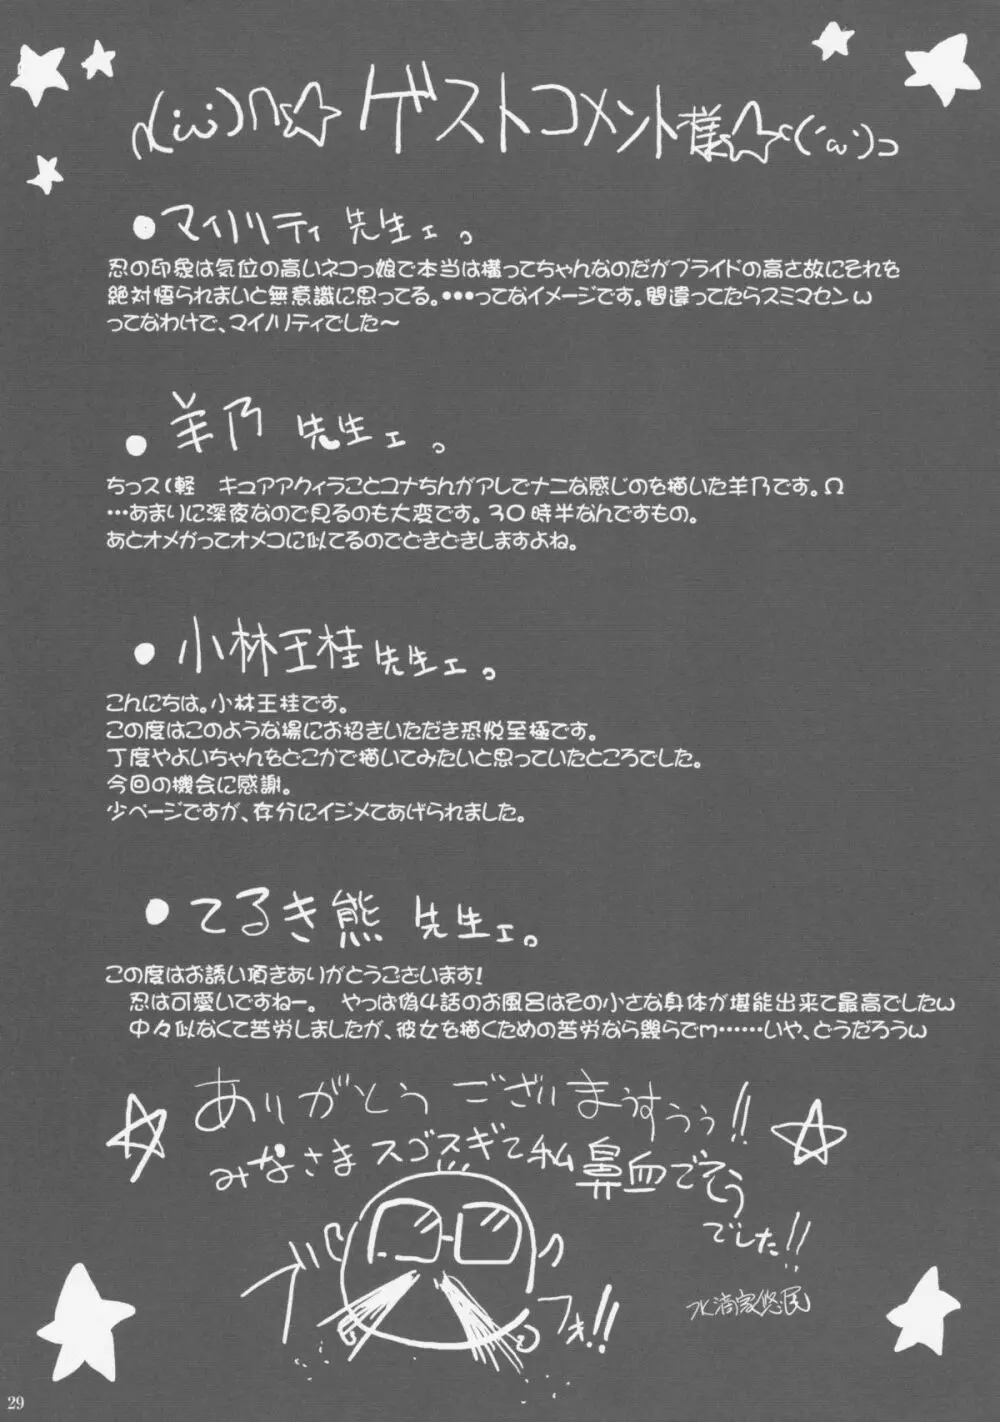 ∩(´ω`)∩☆ゲストコメント様☆⊂(´ω`)⊃
●マイノリティ 先生ェ。
忍の印象は気位の高いネコっ娘で本当は構ってちゃんなのだがプライドの高さ故にそれを
絶対悟られまいと無意識に思ってる。・・・ってなイメージです。間違ってたらスミマセンω
ってなわけで、マイノリティでした〜
●羊乃 先生ェ。
ちっス(軽　キュアアクィラことユナちんがアレでナニな感じのを描いた羊乃です。Ω
…あまりに深夜なので見るのも大変です。30時半なんですもの。
あとオメガってオメコに似てるのでどきどきしますよね。
●小林王桂先生ェ。
こんにちは。小林王桂です。
この度はこのような場にお招きいただき恐悦至極です。
丁度やよいちゃんをどこかで描いてみたいと思っていたところでした。
今回の機会に感謝。
少ページですが、存分にイジメてあげられました。
●てるき熊 先生ェ。
この度はお誘い頂きありがとうございます!
忍は可愛いですねー。　やっぱ偽4話のお風呂はその小さな身体が堪能出来て最高でしたω
中々似なくて苦労しましたが、彼女を描くための苦労なら幾らでm……いや、どうだろうω
ありがとう ございまぅすぅぅ!!
みなさまスゴスギて私鼻血でそう
でした!!
ブ
フォ!!
水滴家悠民
29